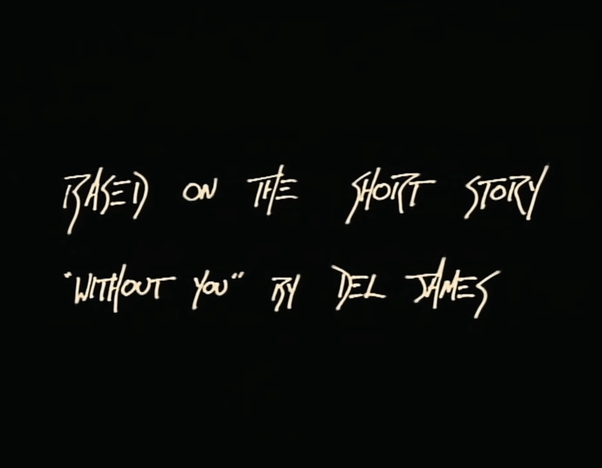 BASED ON THE SHORT STORY
"WITHOUT YOU" BY DEL JAMES